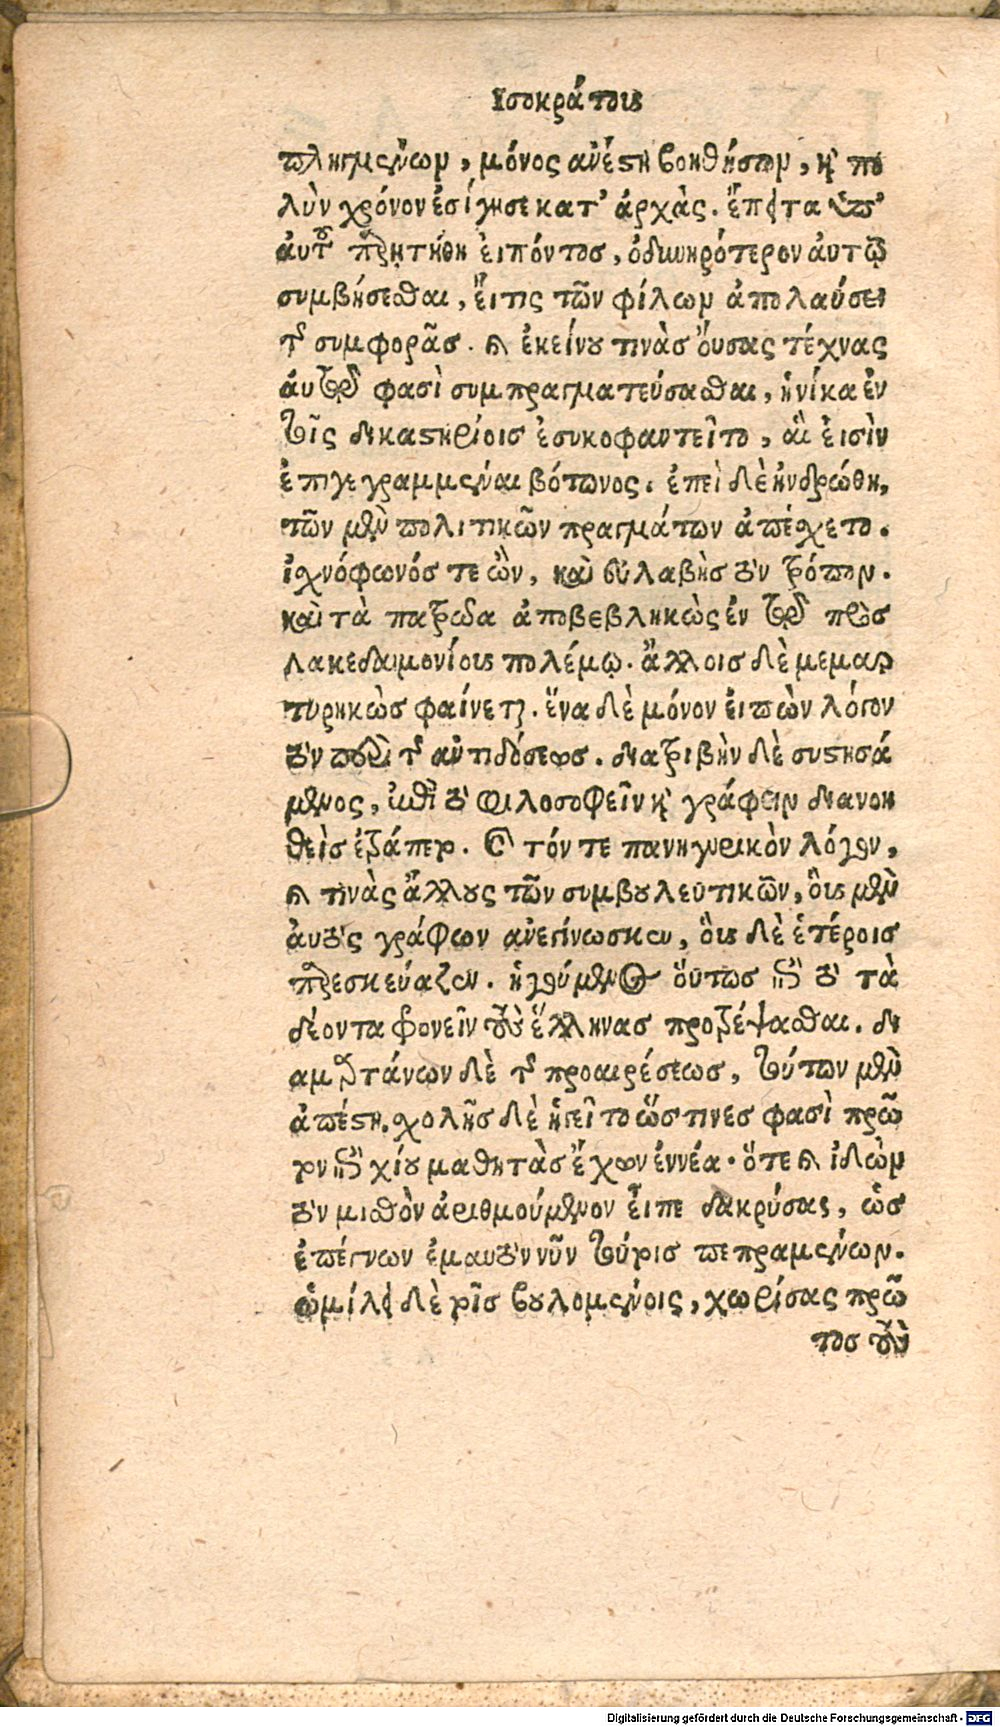 Ἰσοκράτους
πληγμένων, μόνος ἀνέστη βοηθήσων, καὶ πο
λὺν χρόνον ἐσίγησε κατ' ἀρχὰς. ἔπειτα ὑπ'
ἀυτοῦ παρῃτήθη ἐιπόντος, ὀδυνηρότερον ἀυτῷ
συμβήσεσθαι, ἔιτις τῶν φίλων ἀπολαύσει
τῆς συμφορᾶς. καὶ ἐκείνου τινὰς ὄυσας τέχνας
ἀυτῷ φασὶ συμπραγματεύσασθαι, ἡνίκα ἐν
τοῖς δικαστηρίοις ἐσυκοφαντεῖτο, αἵ ἐισὶν
ἐπιγεγραμμέναι βότωνος. ἐπεὶ δὲ ἠνδρώθη,
τῶν μὲν πολιτικῶν πραγμάτων ἀπέσχετο.
ἰσχνόφωνός τε ὢν, καὶ εὐλαβὴς τὸν τρόπον.
καὶ τὰ πατρῶα ἀποβεβληκὼς ἐν τῷ πρὸς
λακεδαιμονίους πολέμῳ. ἄλλοις δὲ μεμαρ
τυρηκὼς φαίνεται. ἕνα δὲ μόνον ἐιπὼν λόγον
τὸν περὶ τῆς ἀντιδόσεως. διατριβὴν δὲ συστησά
μενος, ἐπὶ τὸ φιλοσοφεῖν καὶ γράφειν διανοη
θεὶς ἐτράπετο. καὶ τόν τε πανηγυρικὸν λόγον,
καὶ τινὰς ἄλλους τῶν συμβουλευτικῶν, ὃυς μὲν
ἀυτὸς γράφων ἀνεγίνωσκεν, ὃυς δὲ ἑτέροις
παρεσκεύαζεν. ἡγούμενος ὅυτως ἐπὶ τὸ τὰ
δέοντα φρονεῖν τοὺς ἕλληνας προτρέψασθαι. δι
αμαρτάνων δὲ τῆς προαιρέσεως, τούτων μὲν
ἀπέστη. σχολῆς δὲ ἡγεῖτο ὥς τινες φασὶ πρῶ
τον ἐπὶ χίου μαθητὰς ἔχων ἐννέα. ὅτε καὶ ἰδὼν
τὸν μισθὸν ἀριθμούμενον ἔιπε δακρύσας, ὡς
ἐπέγνων ἐμαυτὸν νῦν τούτοις πεπραμένον.
ὡμίλει δὲ τοῖς βουλομένοις, χωρίσας πρῶ
τος τοὺς